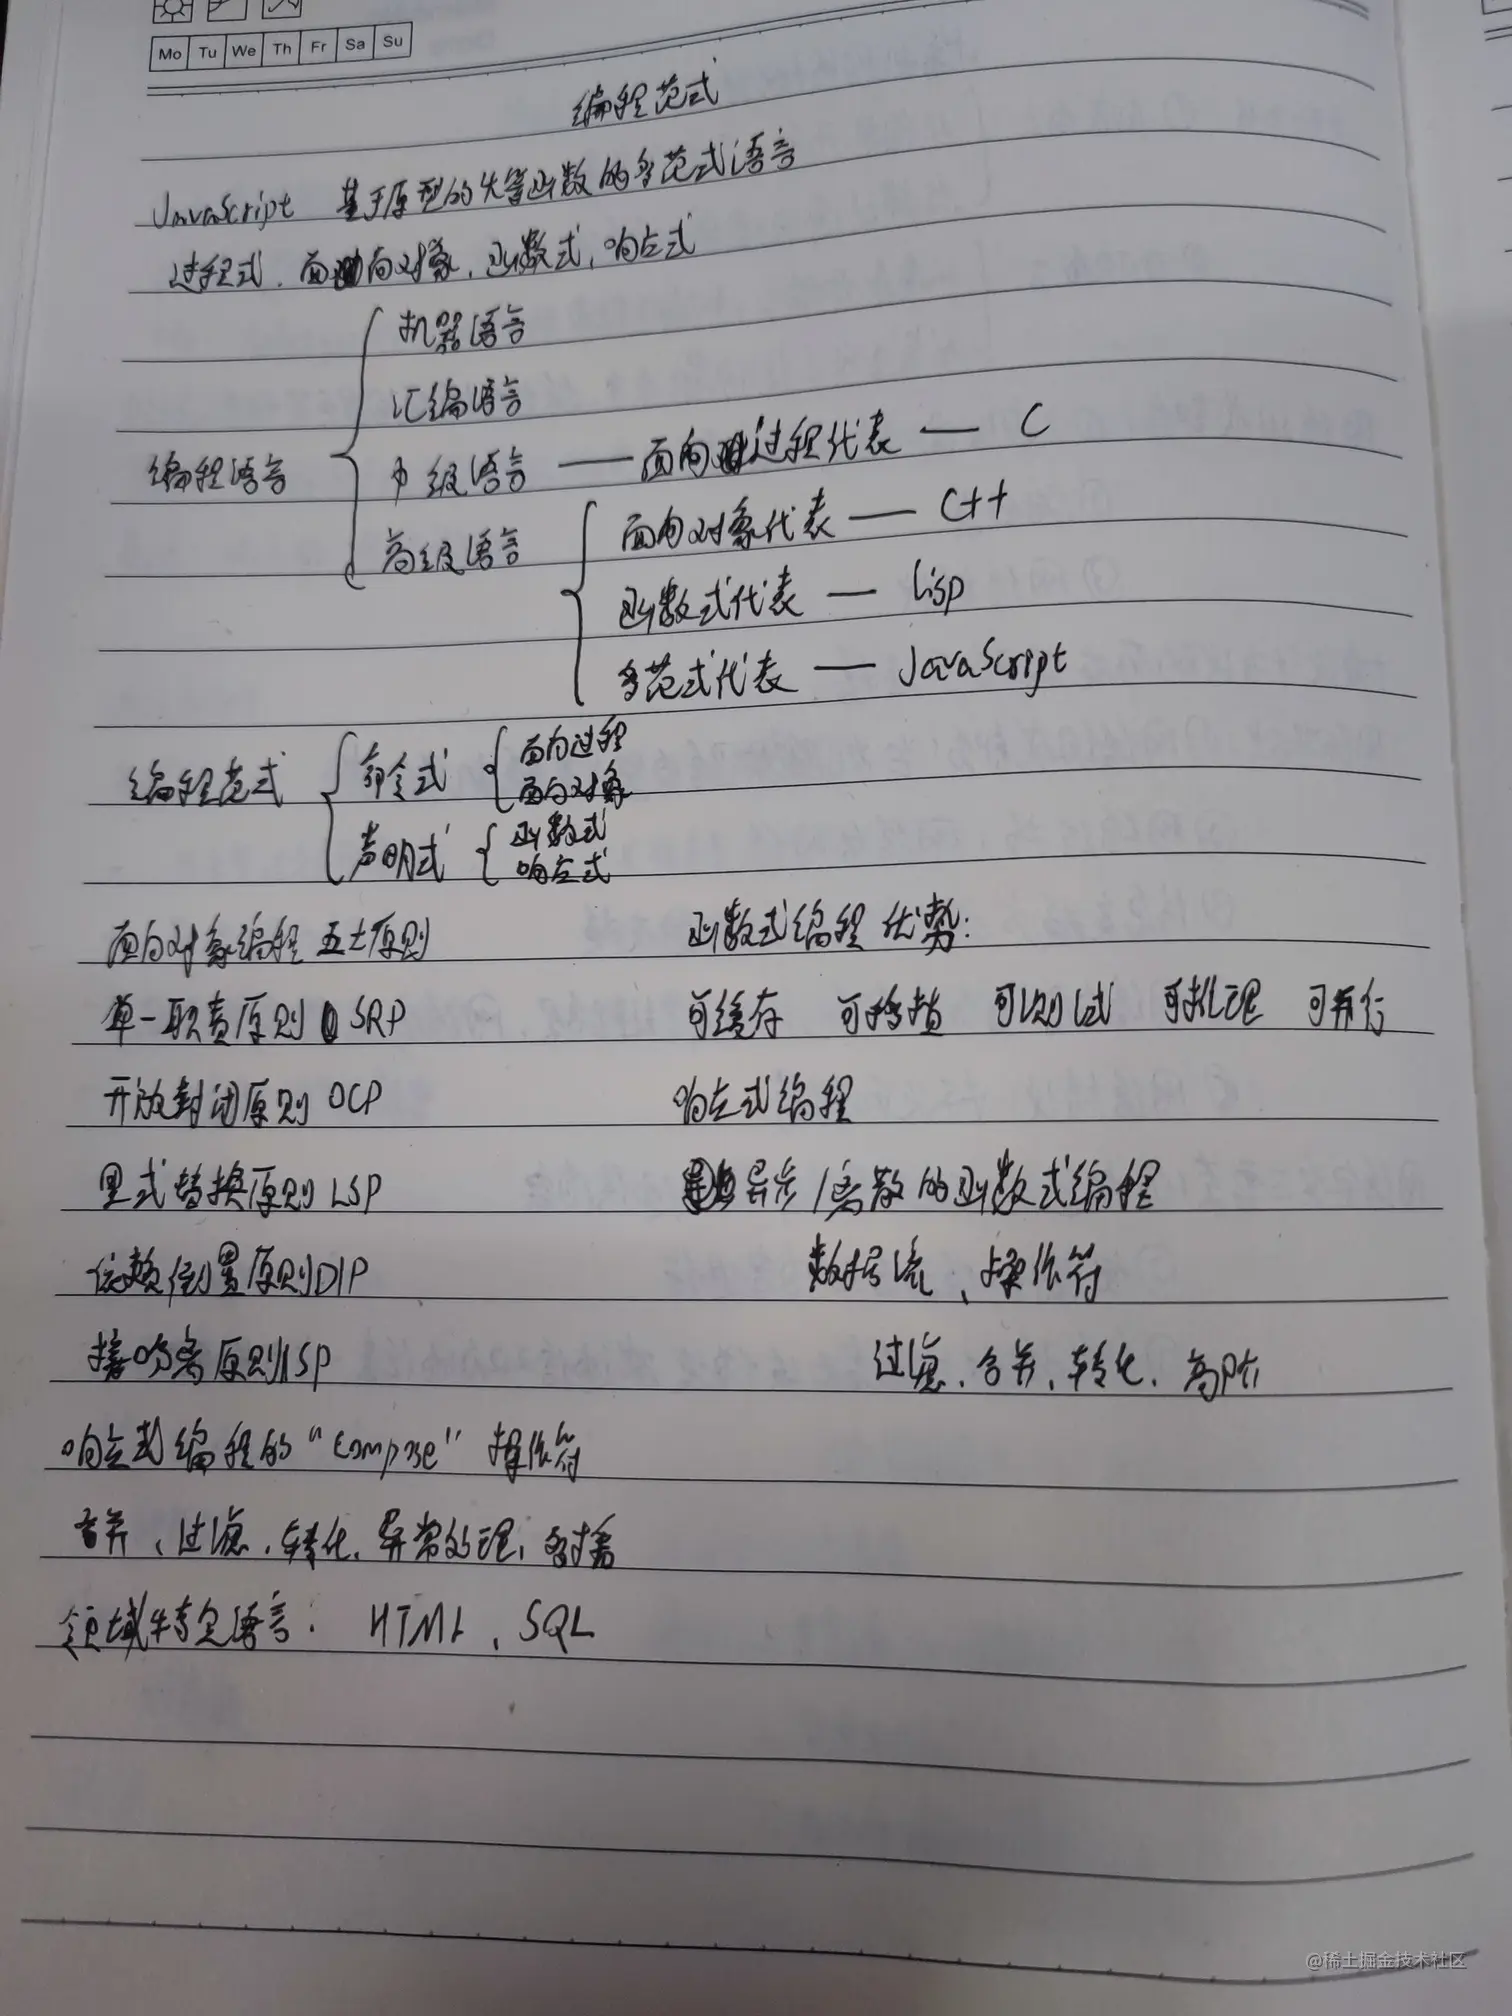 Mo Tu We Th Fr Sa Su
编程范式
JavaScript 基于原型的头等函数的多范式语言
过程式、面向对象、函数式、响应式
机器语言
汇编语言
编程语言
中级语言 —— 面向过程代表 —— C
高级语言
面向对象代表 —— C++
函数式代表 —— Lisp
多范式代表 —— JavaScript
编程范式
命令式
面向过程
面向对象
声明式
函数式
响应式
面向对象编程五大原则
函数式编程优势:
单一职责原则 SRP
可缓存 可移植 可测试 可推理 可并行
开放封闭原则 OCP
响应式编程
里式替换原则 LSP
异步/离散的函数式编程
依赖倒置原则DIP
数据流、操作符
接口分离原则ISP
过滤、合并、转化、高阶
响应式编程的“compose”操作符
合并、过滤、转化、异常处理、多播
领域特定语言: HTML、SQL
@稀土掘金技术社区